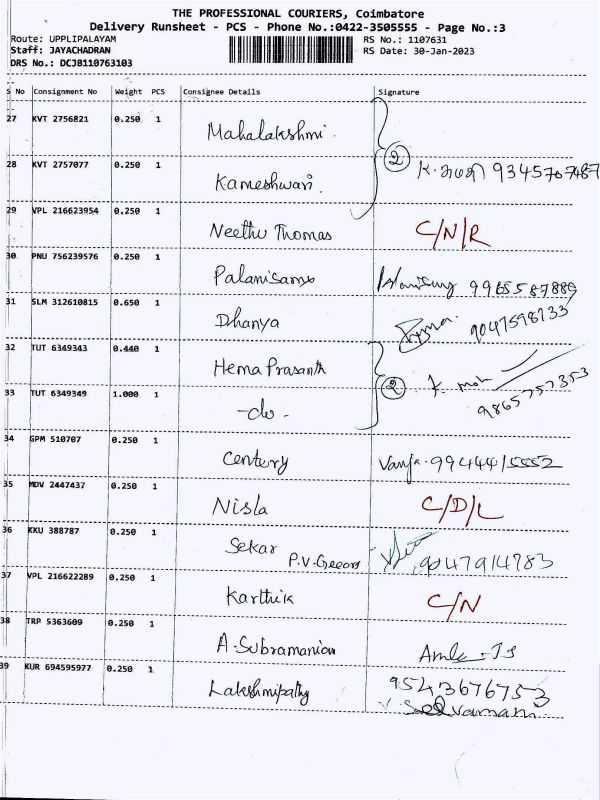 THE PROFESSIONAL COURIERS, Coimbatore
Delivery Runsheet - PCS - Phone No.:0422-3505555 - Page No.:3
Route: UPPLIPALAYAM RS No.: 1107631
Staff: JAYACHADRAN RS Date: 30-Jan-2023
DRS No.: DCJB110763103
S No Consignment No Weight PCS Consignee Details Signature
27 KVT 2756821 0.250 1 Mahalakshmi.
28 KVT 2757077 0.250 1 Kameshwari. 2
29 VPL 216623954 0.250 1 Neethu Thomas C/N/R
30 PNU 756239576 0.250 1 Palanisamy 9965587889
31 SLM 312610815 0.650 1 Dhanya 9047598733
32 TUT 6349343 0.440 1 Hema Prasanth
33 TUT 6349349 1.000 1 -do- 2 9865757353
34 GPM 510707 0.250 1 Century
35 MDV 2447437 0.250 1 Nisla C/D/L
36 KKU 388787 0.250 1 Sekar P.V. 9047914783
37 VPL 216622289 0.250 1 Karthik C/N
38 TRP 5363609 0.250 1 A.Subramanian
39 KUR 694595977 0.250 1 Lakshmipathy 9543676753